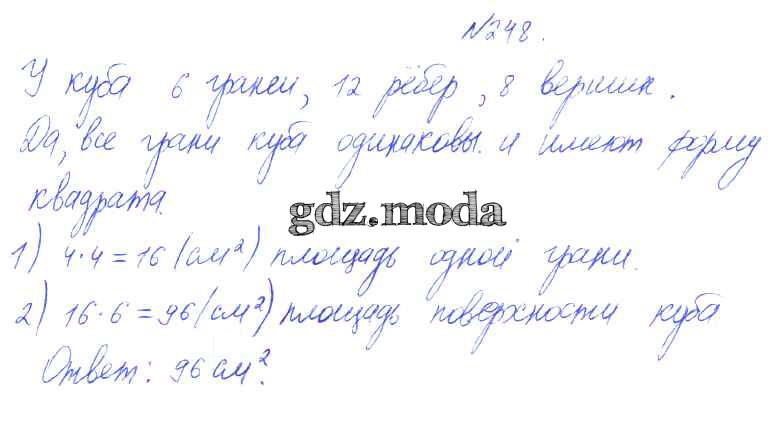 №248.
У куба 6 граней, 12 рёбер, 8 вершин.
Да, все грани куба одинаковы. и имеют форму
квадрата.
gdz.moda
1) 4·4=16 (см²) площадь одной грани.
2) 16·6=96 (см²) площадь поверхности куба
Ответ: 96 см².